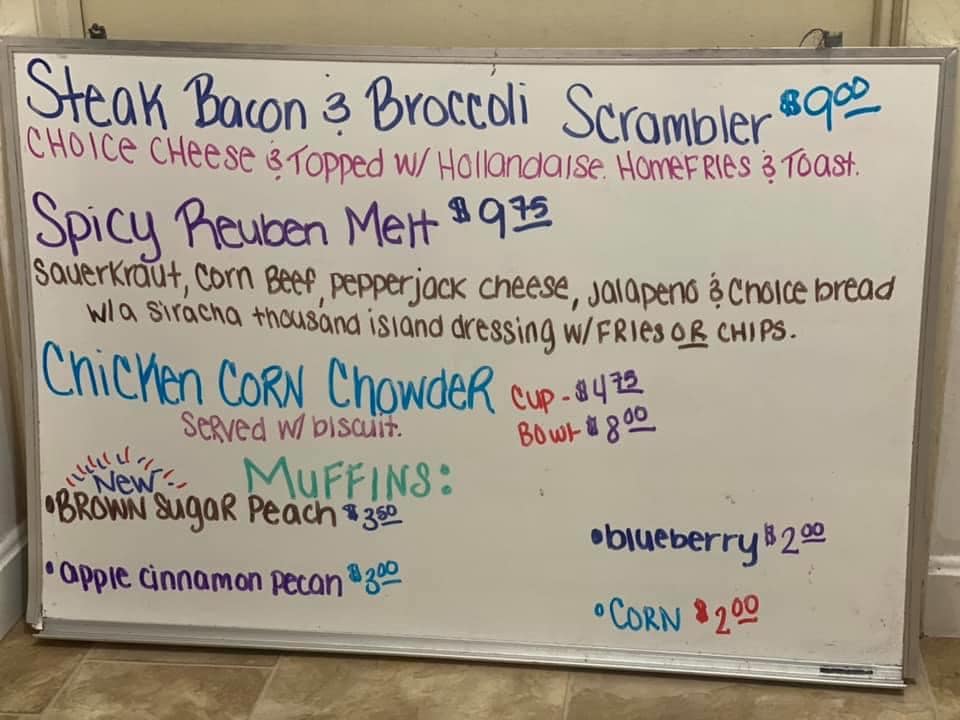 Steak Bacon & Broccoli Scrambler $9.00
CHOICE CHEESE & TOPPED W/ Hollandaise. HOMEFRIES & TOAST.
Spicy Reuben Melt $9.75
Sauerkraut, Corn Beef, pepperjack cheese, Jalapeno & Choice bread
w/a Siracha thousand island dressing w/ FRIES OR CHIPS.
Chicken CORN Chowder
Cup - $4.75
Served w/ biscuit.
Bowl - $8.00
New
MUFFINS:
•BROWN Sugar Peach $3.50
•blueberry $2.00
•apple cinnamon pecan $3.00
•CORN $2.00